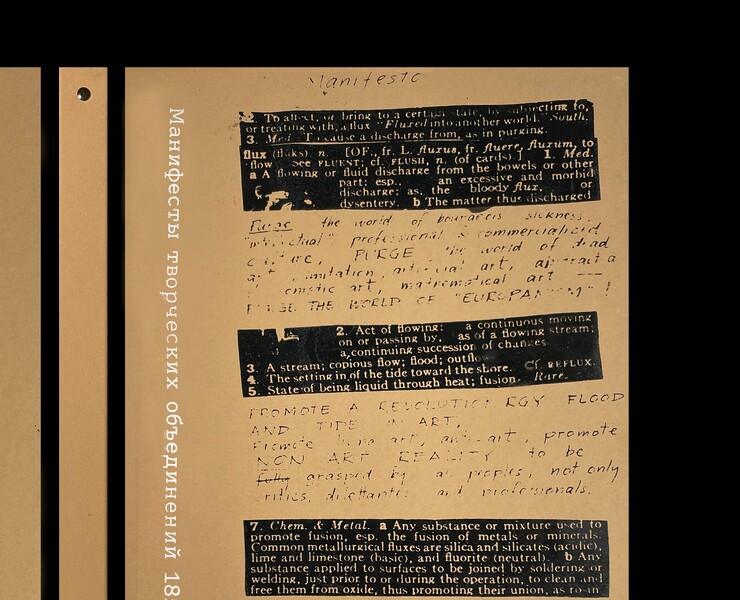 Manifesto
Манифесты творческих объединений 18
2. To affect, or bring to a certain state, by subjecting to,
or treating with, a flux. "Fluxed into another world." South.
3. Med. To cause a discharge from, as in purging.
flux (flŭks), n. [OF., fr. L. fluxus, fr. fluere, fluxum, to
flow. See FLUENT; cf. FLUSH, n. (of cards).] 1. Med.
a A flowing or fluid discharge from the bowels or other
part; esp., an excessive and morbid
discharge; as, the bloody flux, or
dysentery. b The matter thus discharged
Purge the world of bourgeois sickness,
"intellectual" professional & commercialized
culture, PURGE the world of dead
art, imitation, artificial art, abstract a
art, mathematical art —
PURGE THE WORLD OF "EUROPANISM" !
2. Act of flowing: a continuous moving
on or passing by, as of a flowing stream;
a continuing succession of changes.
3. A stream; copious flow; flood; outflow
4. The setting in of the tide toward the shore. Cf. REFLUX.
5. State of being liquid through heat; fusion. Rare.
PROMOTE A REVOLUTIONARY FLOOD
AND TIDE IN ART,
Promote living art, anti-art, promote
NON ART REALITY to be
fully grasped by all peoples, not only
critics, dilettantes and professionals.
7. Chem. & Metal. a Any substance or mixture used to
promote fusion, esp. the fusion of metals or minerals.
Common metallurgical fluxes are silica and silicates (acidic),
lime and limestone (basic), and fluorite (neutral). b Any
substance applied to surfaces to be joined by soldering or
welding, just prior to or during the operation, to clean and
free them from oxide, thus promoting their union, as rosin